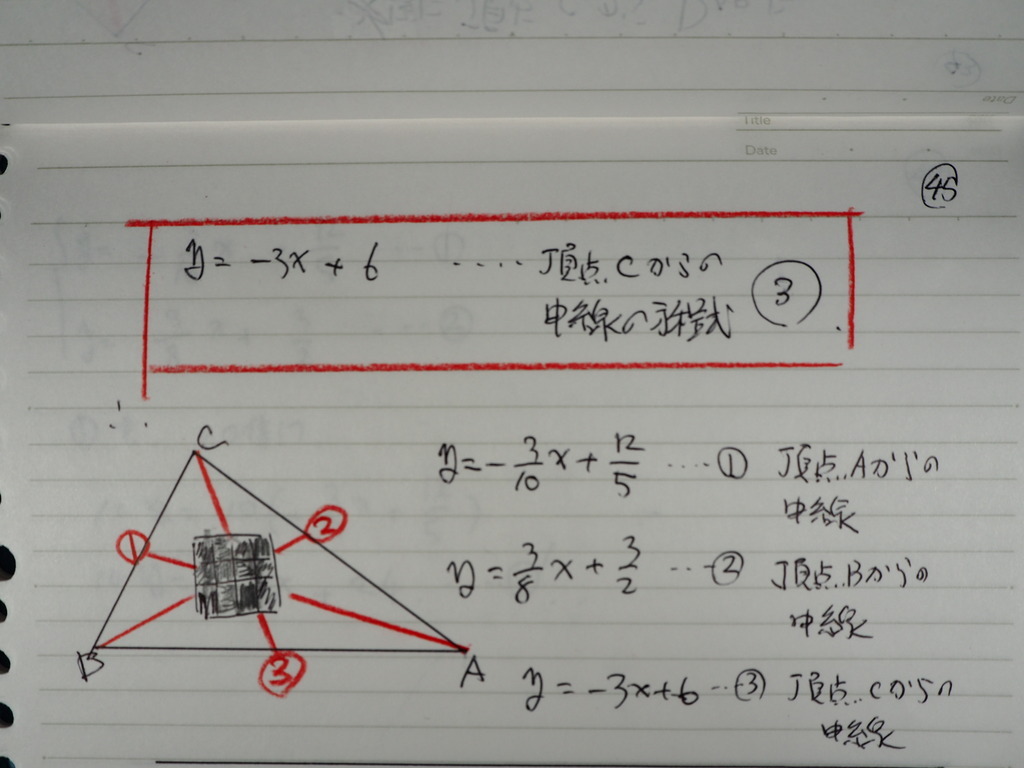 Title
Date
45
y = -3x + 6 ‥‥ 頂点Cからの
中線の方程式 ③
∴
C
① ②
B ③ A
y = -3/10 x + 12/5 ‥‥ ① 頂点Aからの
中線
y = 3/8 x + 3/2 ‥‥ ② 頂点Bからの
中線
y = -3x + 6 ‥ ③ 頂点Cからの
中線